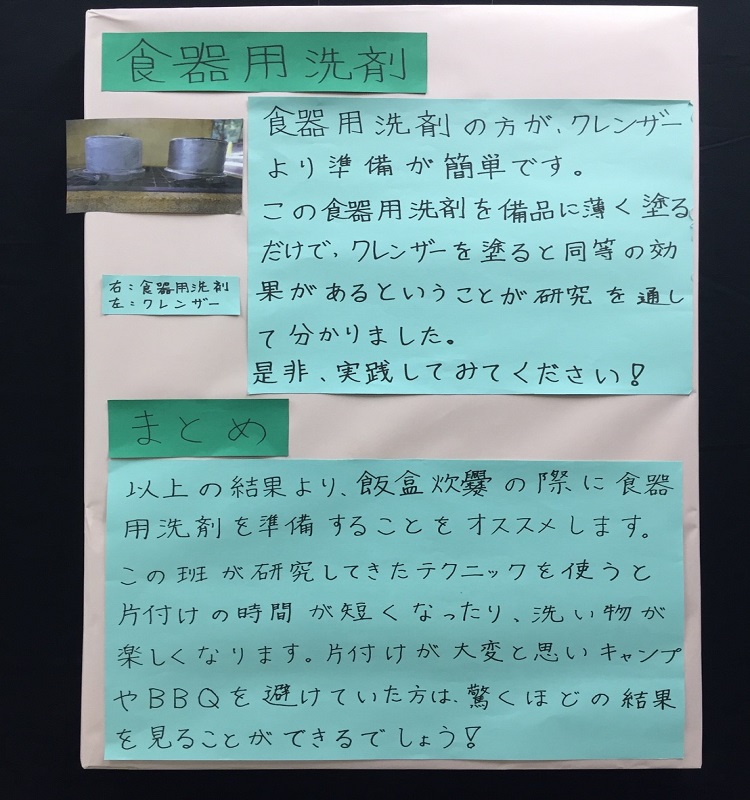 食器用洗剤
食器用洗剤の方が、クレンザー
より準備が簡単です。
この食器用洗剤を備品に薄く塗る
だけで、クレンザーを塗ると同等の効
果があるということが研究を通し
て分かりました。
是非、実践してみてください!
右:食器用洗剤
左:クレンザー
まとめ
以上の結果より、飯盒炊爨の際に食器
用洗剤を準備することをオススメします。
この班が研究してきたテクニックを使うと
片付けの時間が短くなったり、洗い物が
楽しくなります。片付けが大変と思いキャンプ
やBBQを避けていた方は、驚くほどの結果
を見ることができるでしょう!